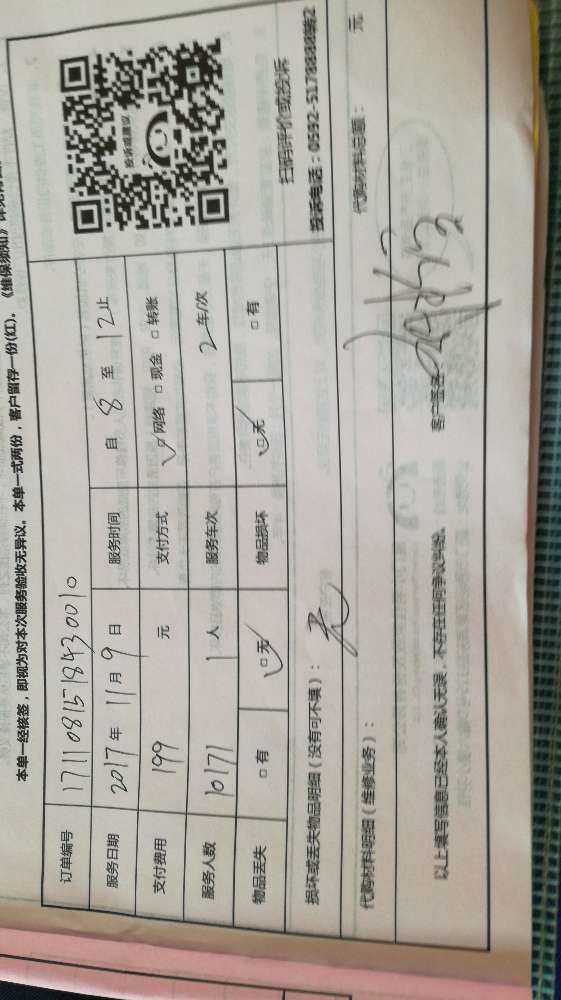 本单一经核签，即视为对本次服务验收无异议。本单一式两份，客户留存一份(红)。《维保须知》
订单编号 1711081518430010
服务日期 2017年 11月 9日 服务时间 自 8 至 12止
支付费用 199 元 支付方式 □网络 □现金 □转账
服务人数 10171 1人 服务车次 2车/次
物品丢失 □有 □无 物品损坏 □无 □有
投诉或建议
扫码评价或投诉
投诉电话：0592-5178888转2
损坏或丢失物品明细（没有可不填）： 无
代购材料明细（维修业务）： 代购材料总额： 元
以上填写信息已经本人确认无误，不存在任何争议纠纷。 客户签字：